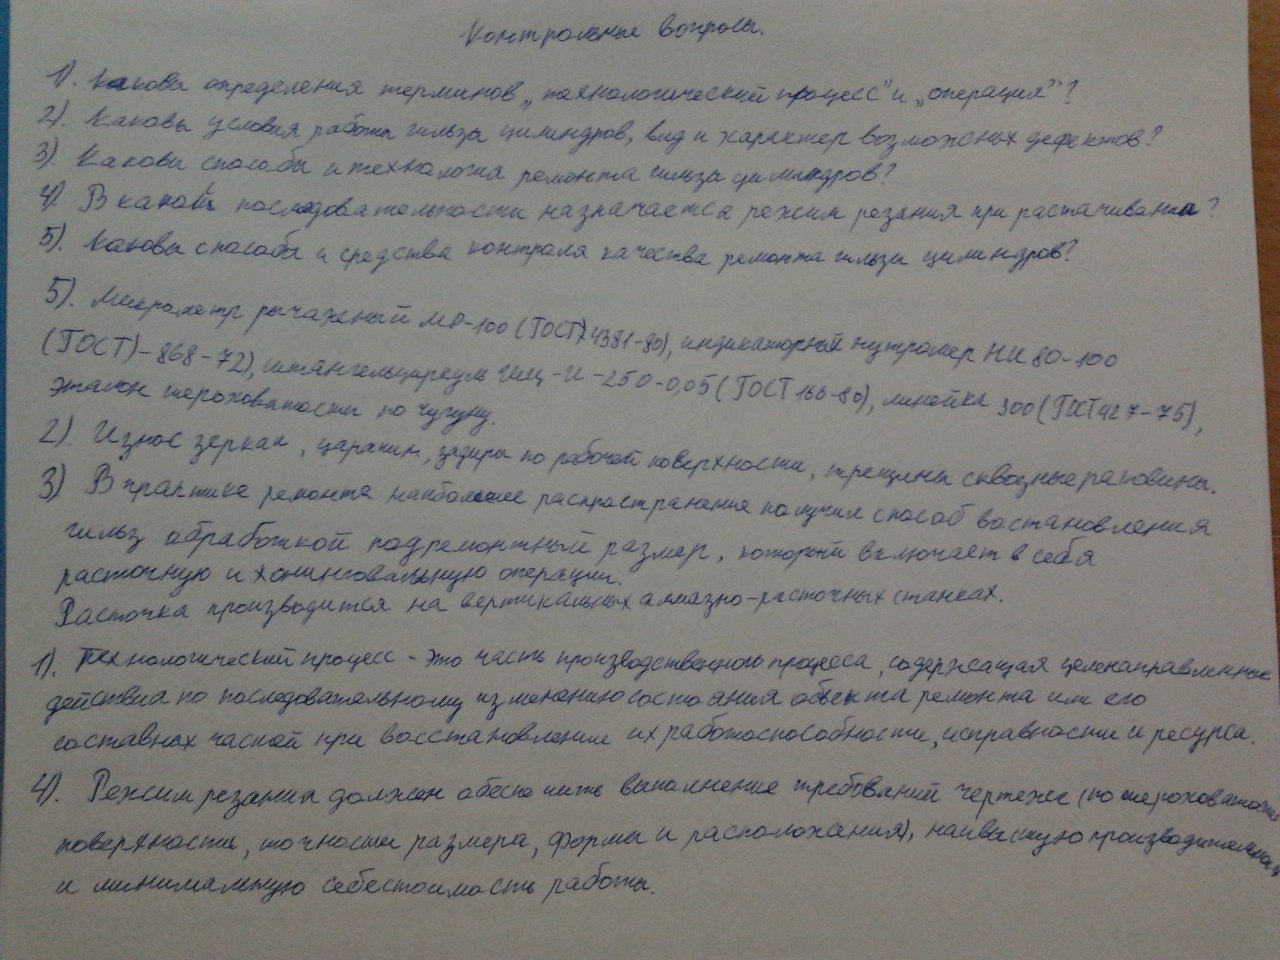 Контрольные вопросы.
1). Каковы определения терминов „технологический процесс" и „операция"?
2). Каковы условия работы гильзы цилиндров, вид и характер возможных дефектов?
3). Каковы способы и технология ремонта гильзы цилиндров?
4). В какой последовательности назначается режим резания при растачивании?
5). Каковы способы и средства контроля качества ремонта гильзы цилиндров?
5). Микрометр рычажный МР-100 (ГОСТ) 4381-80), индикаторный нутромер НИ 80-100
(ГОСТ)-868-72), штангельциркуль ШЦ-II-250-0,05 (ГОСТ 166-80), линейка 300 (ГОСТ 427-75),
эталон шероховатости по чугуну.
2). Износ зеркал, царапин, задиры по рабочей поверхности, трещины сквозные раковины.
3) В практике ремонта наибольшее распространение получил способ востановления
гильз обработкой подремонтный размер, который включает в себя
расточную и хонинговальную операции.
Расточка производится на вертикальных алмазно-расточных станках.
1). Технологический процесс - это часть производственного процесса, содержащая целенаправленные
действия по последовательному изменению состояния объекта ремонта или его
составных частей при восстановлении их работоспособности, исправности и ресурса.
4). Режим резания должен обеспечить выполнение требований чертежа (по шероховатости
поверхности, точности размера, формы и расположения), наивысшую производительность
и минимальную себестоимость работы.